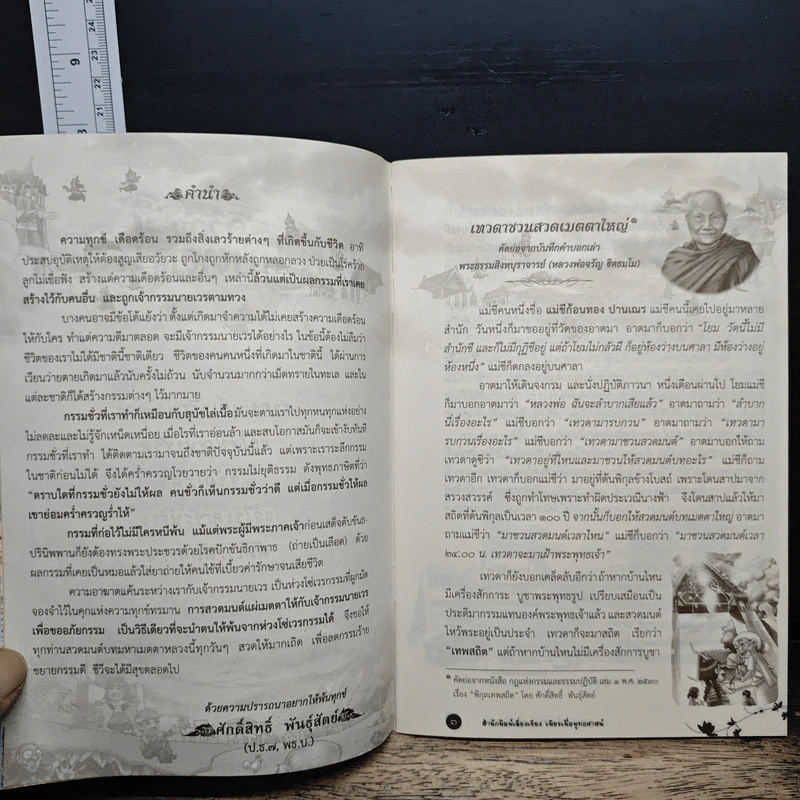 9
24
23
22
21
8
คำนำ
ความทุกข์ เดือดร้อน รวมถึงสิ่งเลวร้ายต่างๆ ที่เกิดขึ้นกับชีวิต อาทิ
ประสบอุบัติเหตุให้ต้องสูญเสียอวัยวะ ถูกโกงถูกหักหลังถูกหลอกลวง ป่วยเป็นโรคร้าย
ลูกไม่เชื่อฟัง สร้างแต่ความเดือดร้อนและอื่นๆ เหล่านี้ล้วนแต่เป็นผลกรรมที่เราเคย
สร้างไว้กับคนอื่น และถูกเจ้ากรรมนายเวรตามทวง
บางคนอาจมีข้อโต้แย้งว่า ตั้งแต่เกิดมาจำความได้ไม่เคยสร้างความเดือดร้อน
ให้กับใคร ทำแต่ความดีมาตลอด จะมีเจ้ากรรมนายเวรได้อย่างไร ในข้อนี้ต้องไม่ลืมว่า
ชีวิตของเราไม่ได้มีชาตินี้ชาติเดียว ชีวิตของคนคนหนึ่งที่เกิดมาในชาตินี้ ได้ผ่านการ
เวียนว่ายตายเกิดมาแล้วนับครั้งไม่ถ้วน นับจำนวนมากกว่าเม็ดทรายในทะเล และใน
แต่ละชาติก็ได้สร้างกรรมต่างๆ ไว้มากมาย
กรรมชั่วที่เราทำก็เหมือนกับสุนัขไล่เนื้อมันจะตามเราไปทุกหนทุกแห่งอย่าง
ไม่ลดละและไม่รู้จักเหน็ดเหนื่อย เมื่อไรที่เราอ่อนล้า และสบโอกาสมันก็จะเข้าขย้ำทันที
กรรมชั่วที่เราทำ ได้ติดตามเรามาจนถึงชาติปัจจุบันนี้แล้ว แต่เพราะเราระลึกกรรม
ในชาติก่อนไม่ได้ จึงได้คร่ำครวญโวยวายว่า กรรมไม่ยุติธรรม ดังพุทธภาษิตที่ว่า
"ตราบใดที่กรรมชั่วยังไม่ให้ผล คนชั่วก็เห็นกรรมชั่วว่าดี แต่เมื่อกรรมชั่วให้ผล
เขาย่อมคร่ำครวญร่ำไห้"
กรรมที่ก่อไว้ไม่มีใครหนีพ้น แม้แต่พระผู้มีพระภาคเจ้าก่อนเสด็จดับขันธ-
ปรินิพพานก็ยังต้องทรงพระประชวรด้วยโรคปักขันธิกาพาธ (ถ่ายเป็นเลือด) ด้วย
ผลกรรมที่เคยเป็นหมอแล้วใส่ยาถ่ายให้คนไข้ที่เบี้ยวค่ารักษาจนเสียชีวิต
ความอาฆาตแค้นระหว่างเรากับเจ้ากรรมนายเวร เป็นห่วงโซ่เวรกรรมที่ผูกมัด
จองจำไว้ในคุกแห่งความทุกข์ทรมาน การสวดมนต์แผ่เมตตาให้กับเจ้ากรรมนายเวร
เพื่อขออภัยกรรม เป็นวิธีเดียวที่จะนำตนให้พ้นจากห่วงโซ่เวรกรรมได้ จึงขอให้
ทุกท่านสวดมนต์บทมหาเมตตาหลวงนี้ทุกวันๆ สวดให้มากเถิด เพื่อลดกรรมร้าย
ขยายกรรมดี ชีวีจะได้มีสุขตลอดไป
ด้วยความปรารถนาอยากให้พ้นทุกข์
ศักดิ์สิทธิ์ พันธุ์สัตย์
(ป.ธ.๗, พธ.บ.)
เทวดาชวนสวดเมตตาใหญ่ ๑
คัดย่อจากบันทึกคำบอกเล่า
พระธรรมสิงหบุราจารย์ (หลวงพ่อจรัญ ฐิตธมฺโม)
แม่ชีคนหนึ่งชื่อ แม่ชีก้อนทอง ปานเณร แม่ชีคนนี้เคยไปอยู่มาหลาย
สำนัก วันหนึ่งก็มาขออยู่ที่วัดของอาตมา อาตมาก็บอกว่า "โยม วัดนี้ไม่มี
สำนักชี และก็ไม่มีกุฏิชีอยู่ แต่ถ้าโยมไม่กลัวผี ก็อยู่ห้องว่างบนศาลา มีห้องว่างอยู่
ห้องหนึ่ง" แม่ชีก็ตกลงอยู่บนศาลา
อาตมาให้เดินจงกรม และนั่งปฏิบัติภาวนา หนึ่งเดือนผ่านไป โยมแม่ชี
ก็มาบอกอาตมาว่า "หลวงพ่อ ฉันจะลำบากเสียแล้ว" อาตมาถามว่า "ลำบาก
นี่เรื่องอะไร" แม่ชีบอกว่า "เทวดามารบกวน" อาตมาถามว่า "เทวดามา
รบกวนเรื่องอะไร" แม่ชีบอกว่า "เทวดามาชวนสวดมนต์" อาตมาบอกให้ถาม
เทวดาดูซิว่า "เทวดาอยู่ที่ไหนและมาชวนให้สวดมนต์บทอะไร" แม่ชีก็ถาม
เทวดาอีก เทวดาก็บอกแม่ชีว่า มาอยู่ที่ต้นพิกุลข้างโบสถ์ เพราะโดนสาปมาจาก
สรวงสวรรค์ ซึ่งถูกทำโทษเพราะทำผิดประเวณีนางฟ้า จึงโดนสาปแล้วให้มา
สถิตที่ต้นพิกุลเป็นเวลา ๑๐๐ ปี จากนั้นก็บอกให้สวดมนต์บทเมตตาใหญ่ อาตมา
ถามแม่ชีว่า "มาชวนสวดมนต์เวลาไหน" แม่ชีก็บอกว่า "มาชวนสวดมนต์เวลา
๒๔.๐๐ น. เทวดาจะมาเฝ้าพระพุทธเจ้า"
เทวดาก็ยังบอกเคล็ดลับอีกว่า ถ้าหากบ้านไหน
มีเครื่องสักการะ บูชาพระพุทธรูป เปรียบเสมือนเป็น
ประติมากรรมแทนองค์พระพุทธเจ้าแล้ว และสวดมนต์
ไหว้พระอยู่เป็นประจำ เทวดาก็จะมาสถิต เรียกว่า
"เทพสถิต" แต่ถ้าหากบ้านไหนไม่มีเครื่องสักการบูชา
๑ คัดย่อจากหนังสือ กฎแห่งกรรมและธรรมปฏิบัติ เล่ม ๑ พ.ศ. ๒๕๓๐
เรื่อง "พิกุลเทพสถิต" โดย ศักดิ์สิทธิ์ พันธุ์สัตย์
๓ สำนักพิมพ์เลี่ยงเชียง เพียรเพื่อพุทธศาสน์